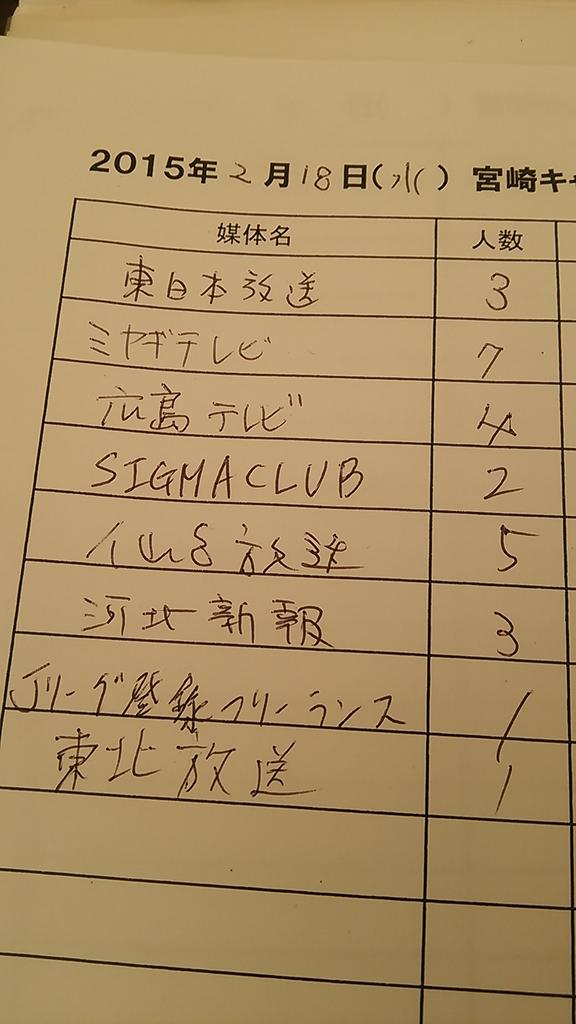 2015年2月18日(水) 宮崎キャ
媒体名 人数
東日本放送 3
ミヤギテレビ 7
広島テレビ 4
SIGMACLUB 2
仙台放送 5
河北新報 3
Jリーグ登録フリーランス 1
東北放送 1